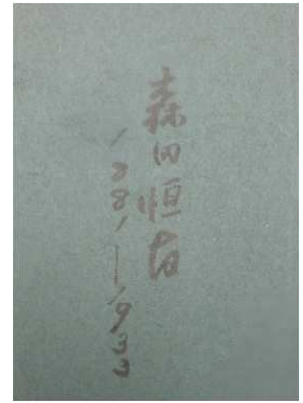 森田恒友
1881—1933